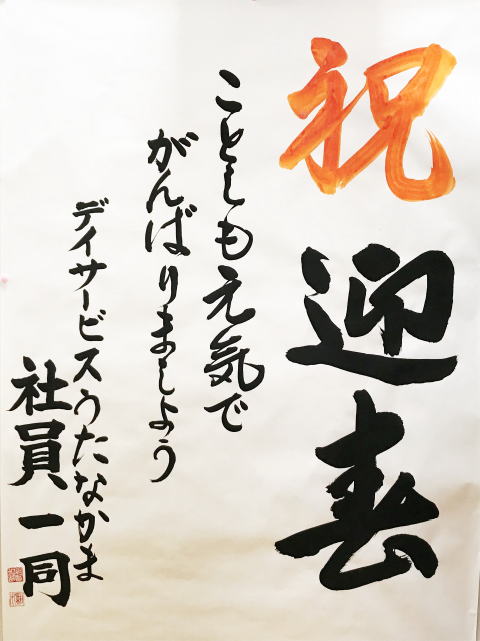 祝
迎春
ことしも元気で
がんばりましょう
デイサービスうたなかま
社員一同